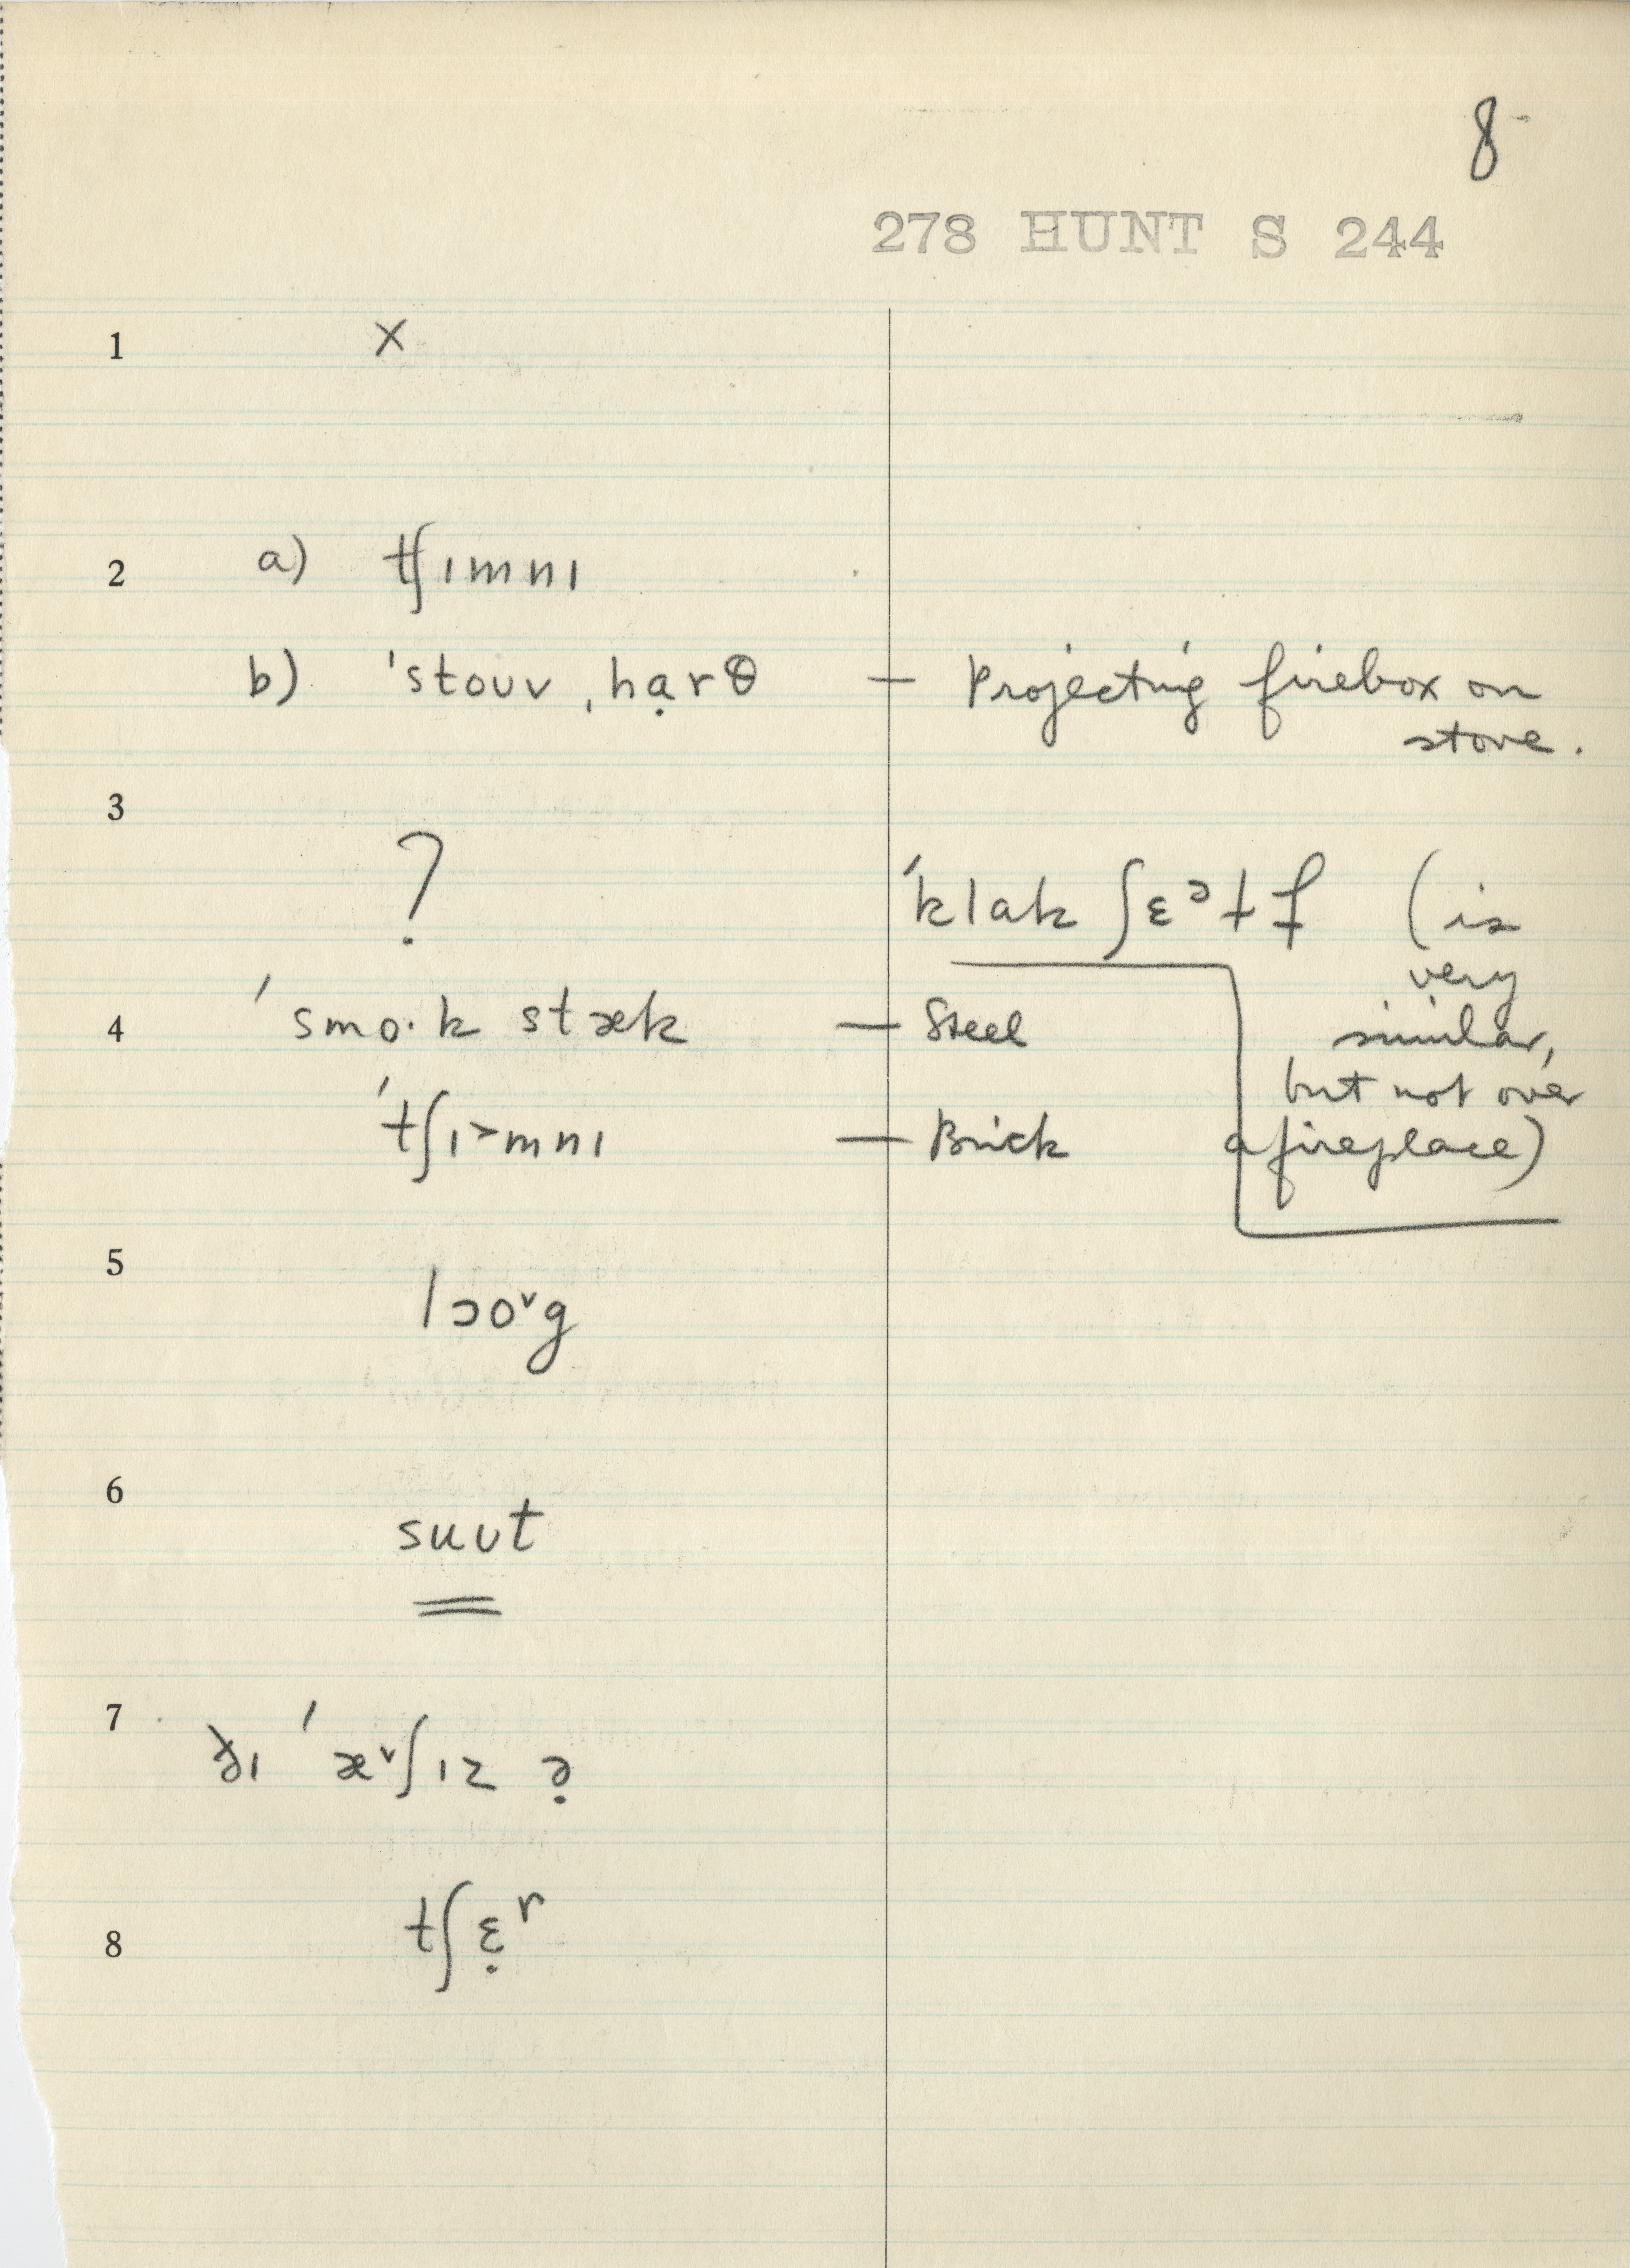 8
278 HUNT S 244
1 X
2 a) tʃɪmnɪ
b) ˈstoʊv ˌhạrθ — Projecting firebox on
stove.
3
? ˈklak ʃɛᵊɫf (is
very
4 ˈsmo·k stæk — Steel similar,
but not over
ˈtʃɪ˃mnɪ — Brick a fireplace)
5 lɔo˅g
6 suʊt
7 ðɪ ˈæ˅ʃɪz ə̣
8 tʃɛ̣ʳ